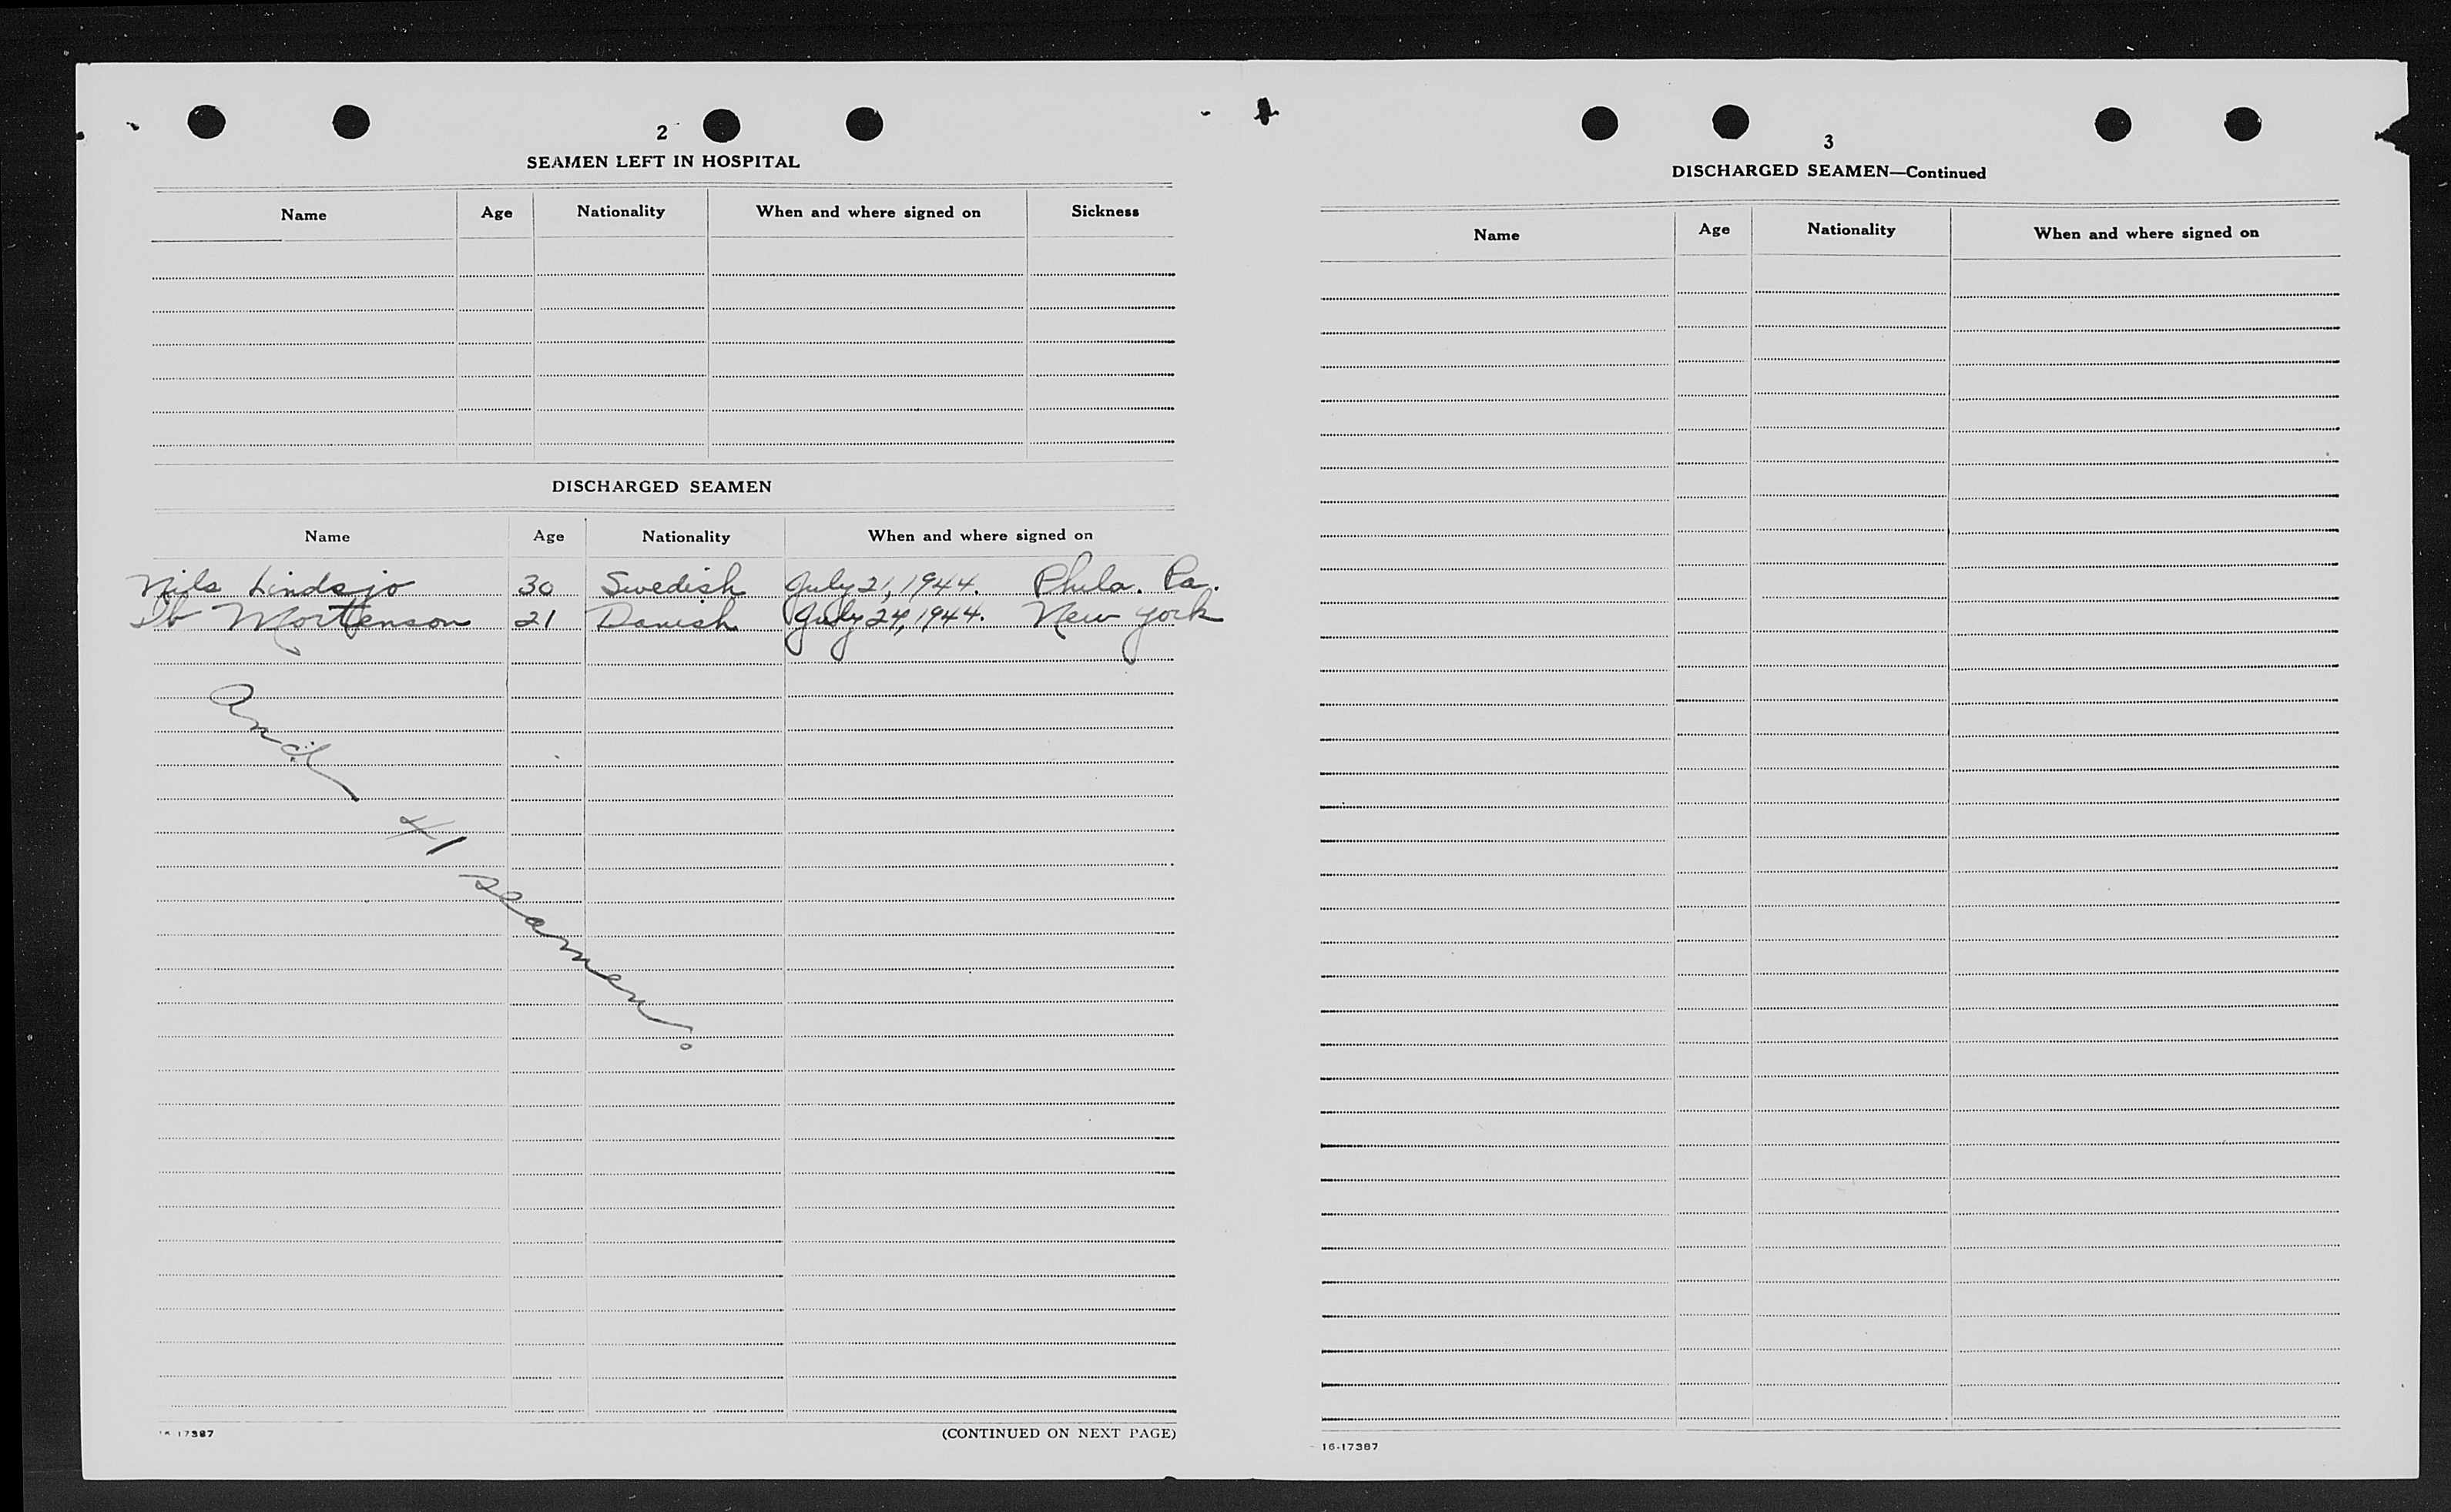 2
SEAMEN LEFT IN HOSPITAL
Name Age Nationality When and where signed on Sickness
DISCHARGED SEAMEN
Name Age Nationality When and where signed on
Nils Lindsjo 30 Swedish July 21, 1944. Phila. Pa.
Ib Mortenson 21 Danish July 24, 1944. New York
41 seamen
16-17387
(CONTINUED ON NEXT PAGE)
3
DISCHARGED SEAMEN—Continued
Name Age Nationality When and where signed on
16-17387